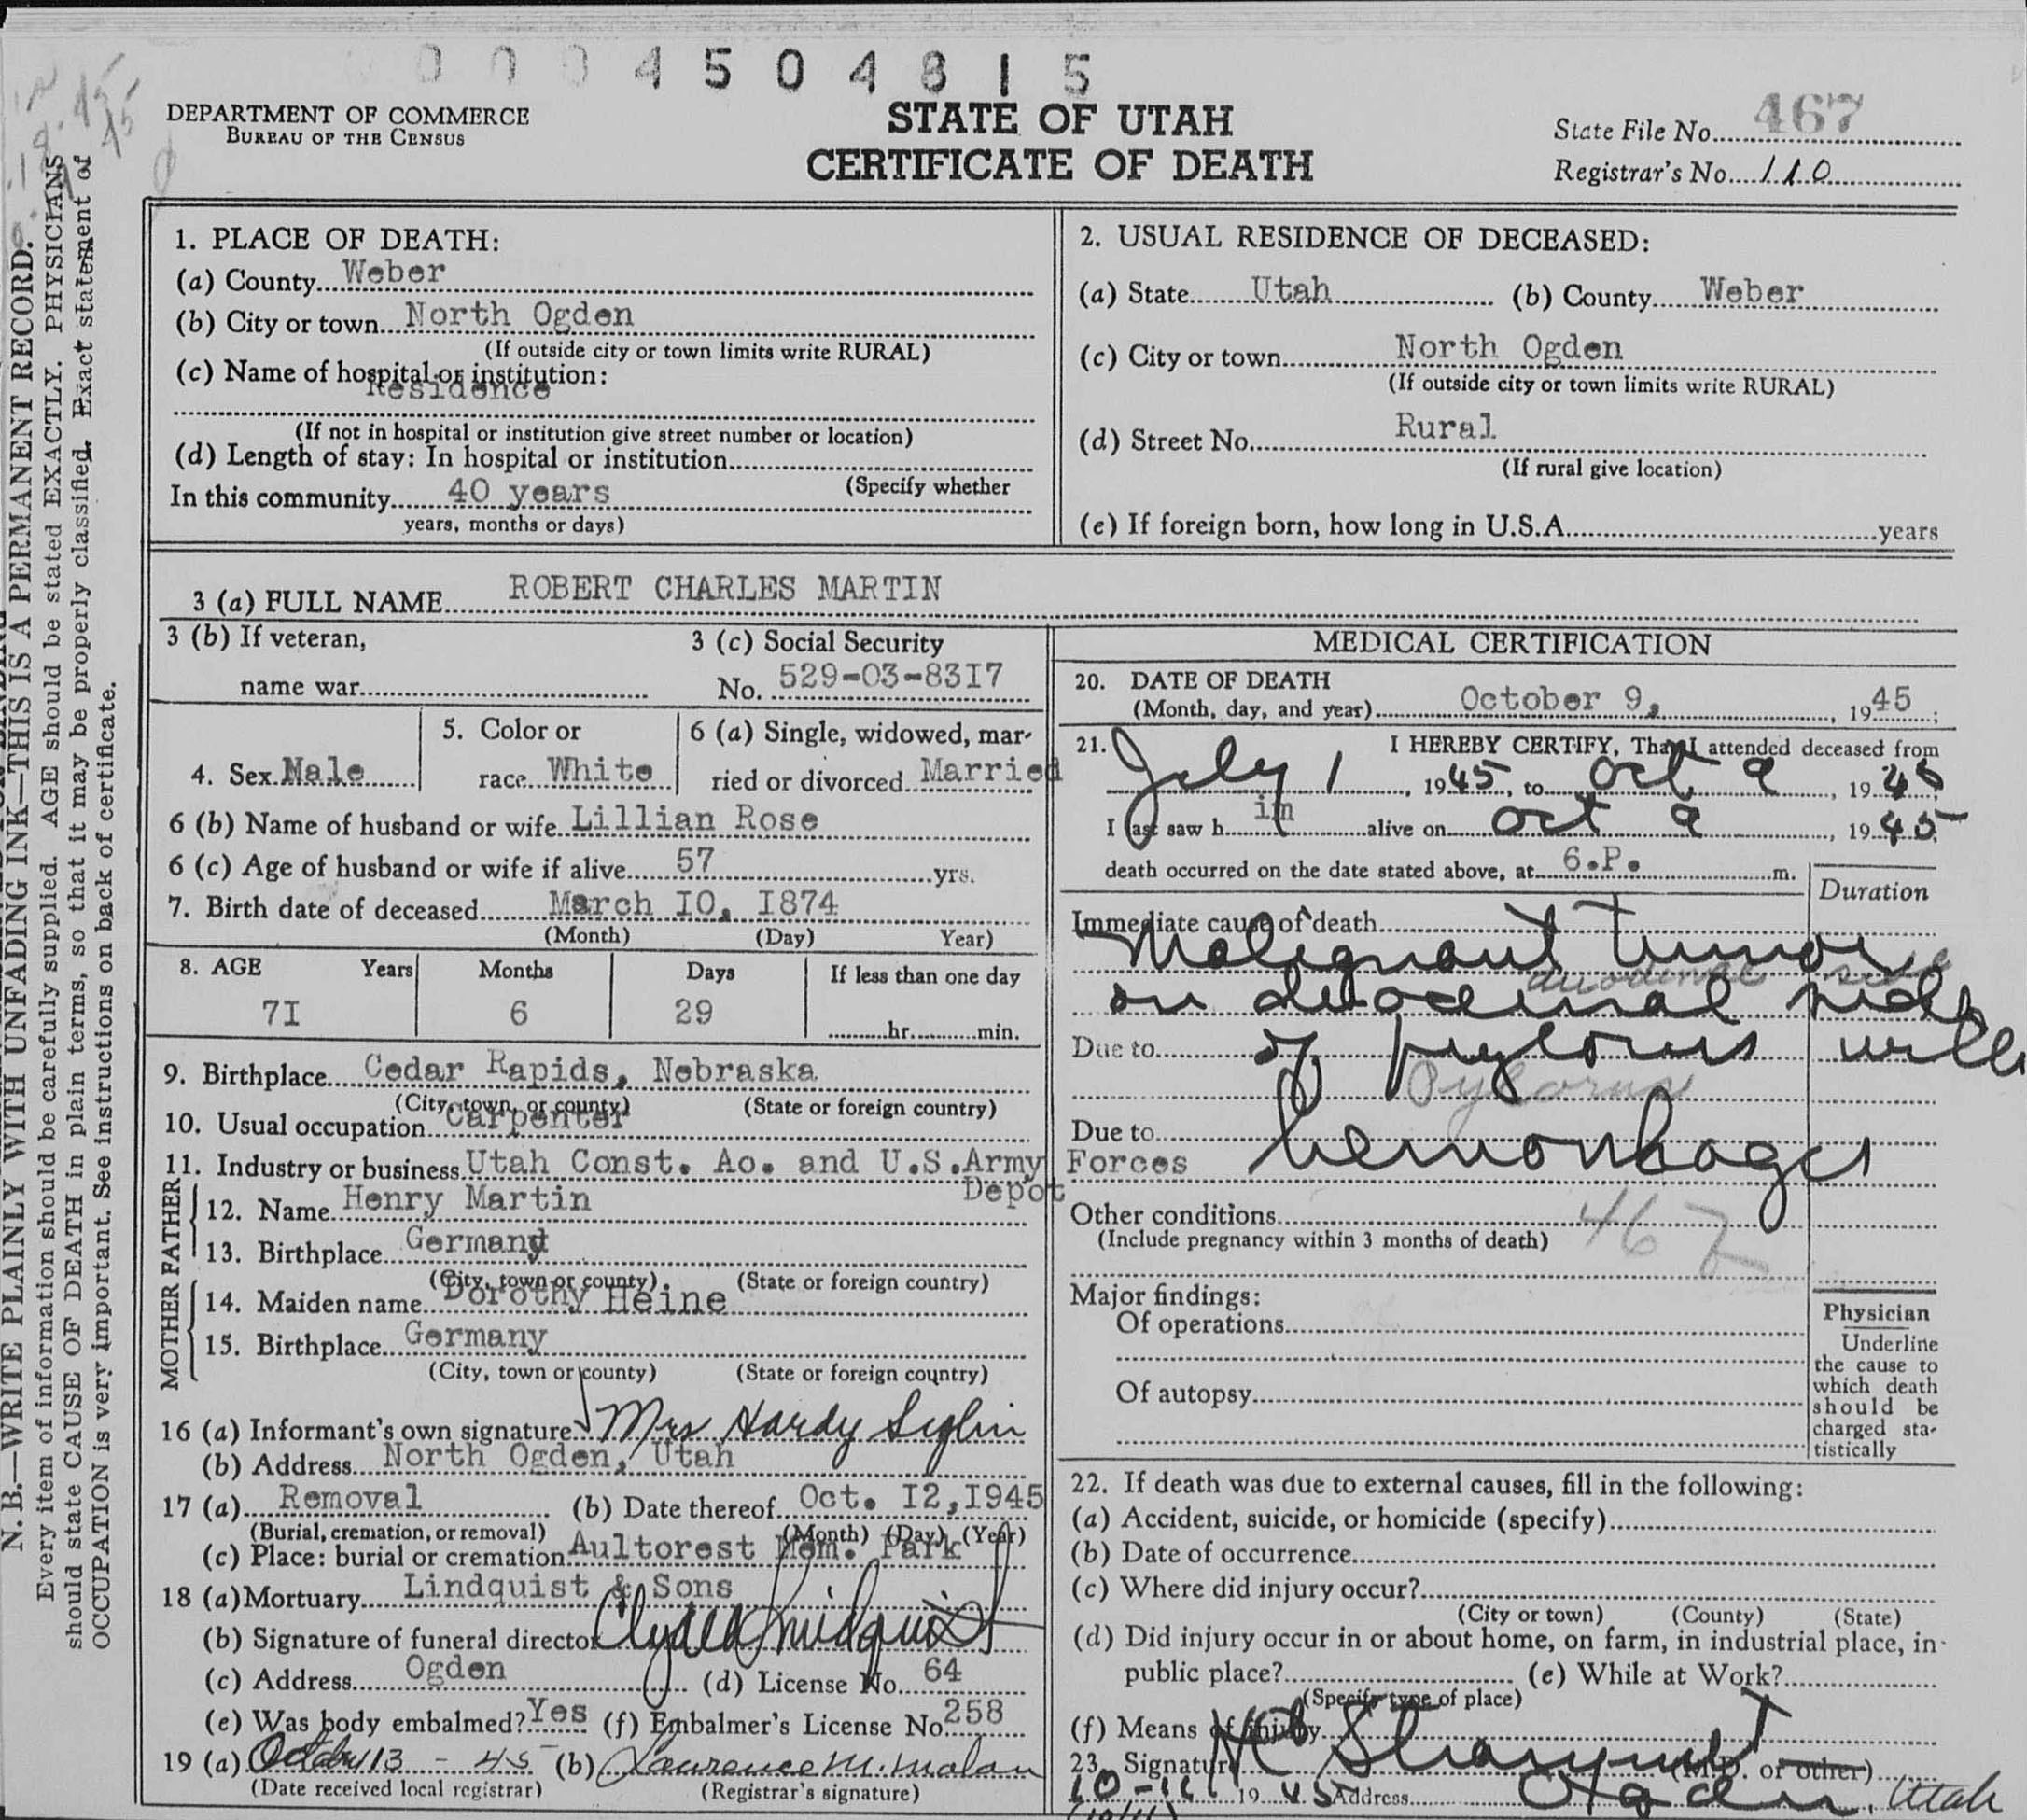 0004504815
DEPARTMENT OF COMMERCE
BUREAU OF THE CENSUS
STATE OF UTAH
CERTIFICATE OF DEATH
State File No. 467
Registrar's No. 110
N. B.—WRITE PLAINLY WITH UNFADING INK—THIS IS A PERMANENT RECORD.
Every item of information should be carefully supplied. AGE should be stated EXACTLY. PHYSICIANS
should state CAUSE OF DEATH in plain terms, so that it may be properly classified. Exact statement of
OCCUPATION is very important. See instructions on back of certificate.
1. PLACE OF DEATH:
(a) County Weber
(b) City or town North Ogden
(If outside city or town limits write RURAL)
(c) Name of hospital or institution:
Residence
(If not in hospital or institution give street number or location)
(d) Length of stay: In hospital or institution
(Specify whether
In this community 40 years
years, months or days)
2. USUAL RESIDENCE OF DECEASED:
(a) State Utah (b) County Weber
(c) City or town North Ogden
(If outside city or town limits write RURAL)
(d) Street No. Rural
(If rural give location)
(e) If foreign born, how long in U.S.A. years
3 (a) FULL NAME ROBERT CHARLES MARTIN
3 (b) If veteran,
name war
3 (c) Social Security
No. 529-03-83I7
4. Sex Male
5. Color or
race White
6 (a) Single, widowed, mar-
ried or divorced Married
6 (b) Name of husband or wife Lillian Rose
6 (c) Age of husband or wife if alive 57 yrs.
7. Birth date of deceased March I0, I874
(Month) (Day) Year)
8. AGE Years Months Days If less than one day
7I 6 29 hr. min.
9. Birthplace Cedar Rapids, Nebraska
(City, town, or county) (State or foreign country)
10. Usual occupation Carpenter
11. Industry or business Utah Const. Ao. and U.S.Army Forces
Depot
FATHER
12. Name Henry Martin
13. Birthplace Germany
(City, town or county) (State or foreign country)
MOTHER
14. Maiden name Dorothy Heine
15. Birthplace Germany
(City, town or county) (State or foreign country)
16 (a) Informant's own signature Mrs Hardy Siglin
(b) Address North Ogden, Utah
17 (a) Removal (b) Date thereof Oct. I2,I945
(Burial, cremation, or removal) (Month) (Day) (Year)
(c) Place: burial or cremation Aultorest Mem. Park
18 (a) Mortuary Lindquist & Sons
(b) Signature of funeral director Clyde Lindquist
(c) Address Ogden (d) License No. 64
(e) Was body embalmed? Yes (f) Embalmer's License No. 258
19 (a) October 13 - 45 (b) Laurence M. Malan
(Date received local registrar) (Registrar's signature)
MEDICAL CERTIFICATION
20. DATE OF DEATH
(Month, day, and year) October 9, 1945;
21. I HEREBY CERTIFY, That I attended deceased from
July 1, 1945, to Oct 9, 1945;
I last saw him alive on Oct 9, 1945
death occurred on the date stated above, at 6.P. m.
Duration
Immediate cause of death
Malignant tumor
duodenal side
on duodenal side
Due to of pylorus with
Pylorus
Due to hemorrhages
Other conditions
(Include pregnancy within 3 months of death)
46
Major findings:
Of operations
Of autopsy
Physician
Underline
the cause to
which death
should be
charged sta-
tistically
22. If death was due to external causes, fill in the following:
(a) Accident, suicide, or homicide (specify)
(b) Date of occurrence
(c) Where did injury occur?
(City or town) (County) (State)
(d) Did injury occur in or about home, on farm, in industrial place, in
public place? (e) While at Work?
(Specify type of place)
(f) Means of injury
23. Signature (M.D. or other)
19 45 Address Ogden, Utah